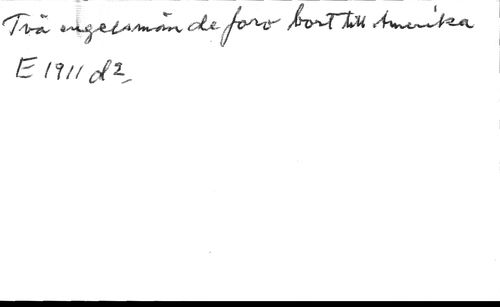 Två engelsmän de foro bort till Amerika
E 1911 d2